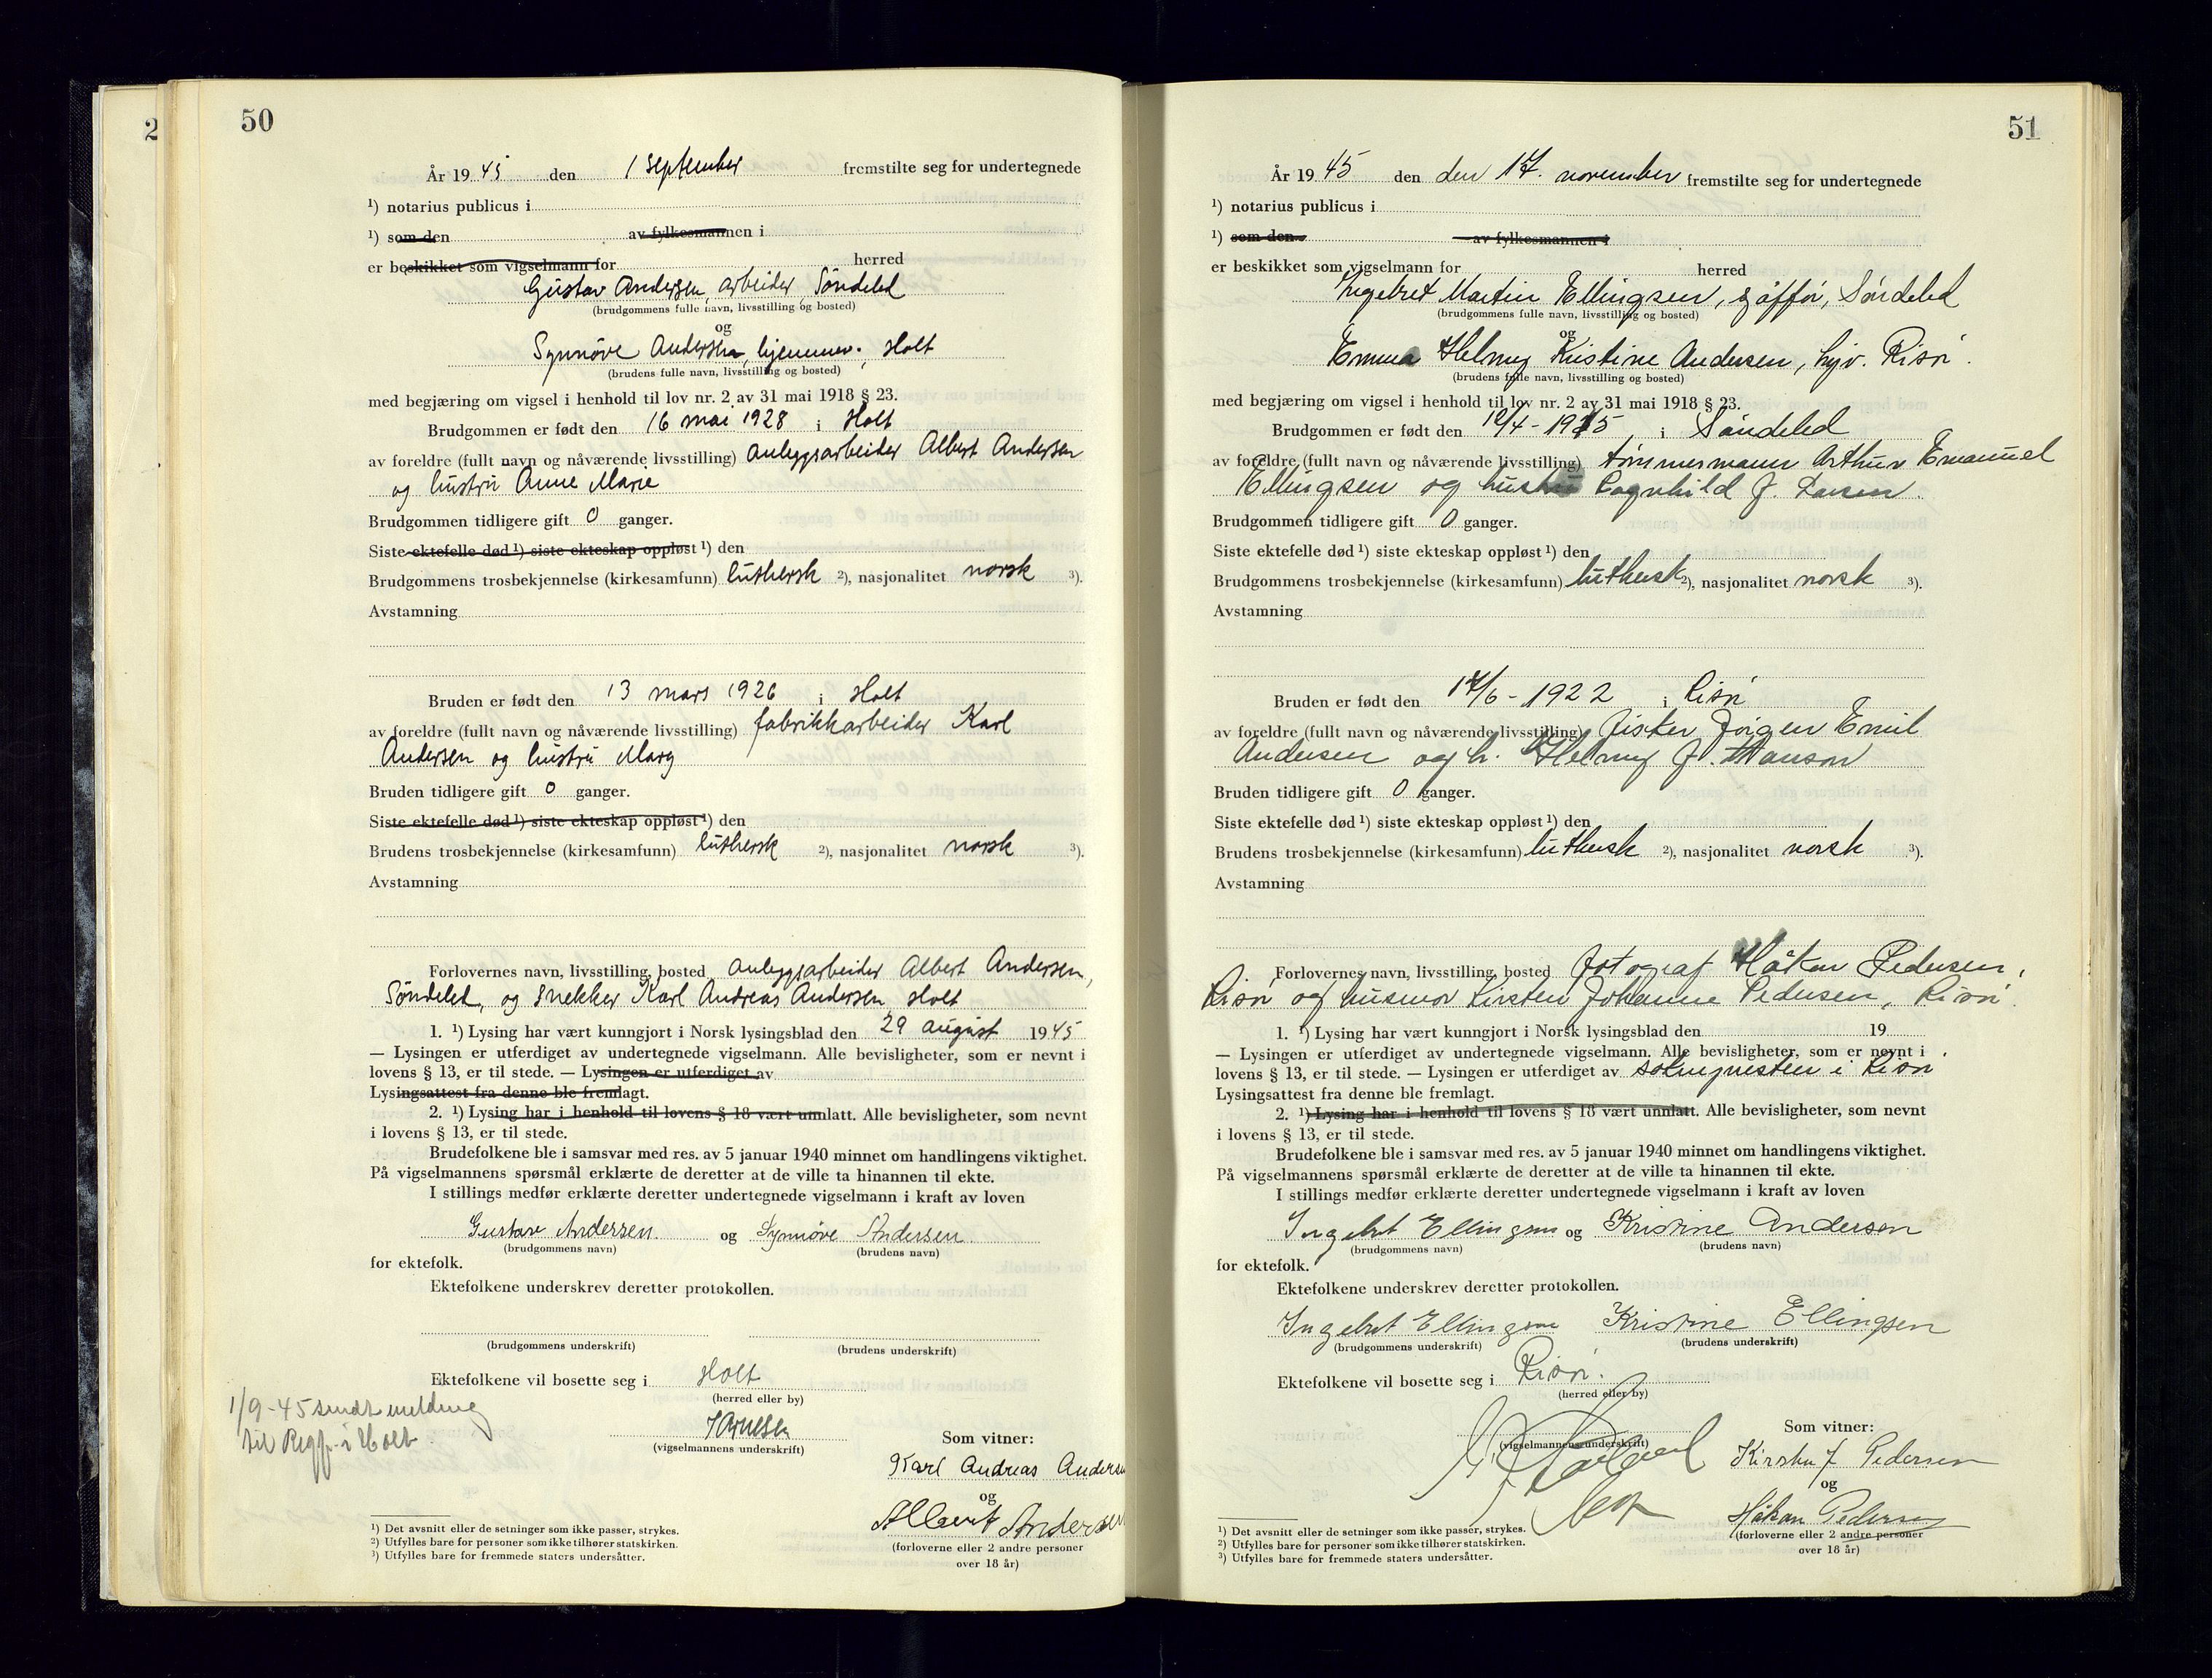 2
50
År 19 45 den 1 september fremstilte seg for undertegnede
¹) notarius publicus i
¹) som den av fylkesmannen i
er beskikket som vigselmann for herred
Gustav Andersen, arbeider, Söndeled
(brudgommens fulle navn, livsstilling og bosted)
og
Synnöve Andersen, hjemmev., Holt
(brudens fulle navn, livsstilling og bosted)
med begjæring om vigsel i henhold til lov nr. 2 av 31 mai 1918 § 23.
Brudgommen er født den 16 mai 1928 i Holt
av foreldre (fullt navn og nåværende livsstilling) anleggsarbeider Albert Andersen
og hustru Anne Marie
Brudgommen tidligere gift 0 ganger.
Siste ektefelle død ¹) siste ekteskap oppløst ¹) den
Brudgommens trosbekjennelse (kirkesamfunn) luthersk ²), nasjonalitet norsk ³).
Avstamning
Bruden er født den 13 mars 1926 i Holt
av foreldre (fullt navn og nåværende livsstilling) fabrikkarbeider Karl
Andersen og hustru Marg
Bruden tidligere gift 0 ganger.
Siste ektefelle død ¹) siste ekteskap oppløst ¹) den
Brudens trosbekjennelse (kirkesamfunn) luthersk ²), nasjonalitet norsk ³).
Avstamning
Forlovernes navn, livsstilling, bosted anleggsarbeider Albert Andersen,
Söndeled, og snekker Karl Andreas Andersen Holt
1. ¹) Lysing har vært kunngjort i Norsk lysingsblad den 29 august 1945
— Lysingen er utferdiget av undertegnede vigselmann. Alle bevisligheter, som er nevnt i
lovens § 13, er til stede. — Lysingen er utferdiget av
Lysingsattest fra denne ble fremlagt.
2. ¹) Lysing har i henhold til lovens § 18 vært unnlatt. Alle bevisligheter, som nevnt
i lovens § 13, er til stede.
Brudefolkene ble i samsvar med res. av 5 januar 1940 minnet om handlingens viktighet.
På vigselmannens spørsmål erklærte de deretter at de ville ta hinannen til ekte.
I stillings medfør erklærte deretter undertegnede vigselmann i kraft av loven
Gustav Andersen. og Synnøve Andersen.
(brudgommens navn) (brudens navn)
for ektefolk.
Ektefolkene underskrev deretter protokollen.
(brudgommens underskrift) (brudens underskrift)
Ektefolkene vil bosette seg i Holt
(herred eller by)
1/9-45 sendt melding
til Regf. i Holt
(vigselmannens underskrift)
Som vitner:
Karl Andreas Andersen
og
Albert Andersen
(forloverne eller 2 andre personer
over 18 år)
¹) Det avsnitt eller de setninger som ikke passer, strykes.
²) Utfylles bare for personer som ikke tilhører statskirken.
³) Utfylles bare for fremmede staters undersåtter.
51
År 19 45 den den 17. november fremstilte seg for undertegnede
¹) notarius publicus i
¹) som den av fylkesmannen i
er beskikket som vigselmann for herred
Ingebret Martin Ellingsen, sjåffør, Söndeled
(brudgommens fulle navn, livsstilling og bosted)
og
Emma Helmy Kristine Andersen, hjv. Risör.
(brudens fulle navn, livsstilling og bosted)
med begjæring om vigsel i henhold til lov nr. 2 av 31 mai 1918 § 23.
Brudgommen er født den i Söndeled
av foreldre (fullt navn og nåværende livsstilling) tømmermann Arthur Emanuel
Ellingsen og hustru Ragnhild J. Larsen.
Brudgommen tidligere gift 0 ganger.
Siste ektefelle død ¹) siste ekteskap oppløst ¹) den
Brudgommens trosbekjennelse (kirkesamfunn) luthersk ²), nasjonalitet norsk ³).
Avstamning
Bruden er født den 17/6-1922 i Risör
av foreldre (fullt navn og nåværende livsstilling) fisker Jörgen Emil
Andersen og h. Helmy J. Hanson
Bruden tidligere gift 0 ganger.
Siste ektefelle død ¹) siste ekteskap oppløst ¹) den
Brudens trosbekjennelse (kirkesamfunn) luthersk ²), nasjonalitet norsk ³).
Avstamning
Forlovernes navn, livsstilling, bosted fotograf Håkon Pedersen,
Risör og husmor Kirsten Johanne Pedersen, Risör.
1. ¹) Lysing har vært kunngjort i Norsk lysingsblad den 19
— Lysingen er utferdiget av undertegnede vigselmann. Alle bevisligheter, som er nevnt i
lovens § 13, er til stede. — Lysingen er utferdiget av soknepresten i Risör
Lysingsattest fra denne ble fremlagt.
2. ¹) Lysing har i henhold til lovens § 18 vært unnlatt. Alle bevisligheter, som nevnt
i lovens § 13, er til stede.
Brudefolkene ble i samsvar med res. av 5 januar 1940 minnet om handlingens viktighet.
På vigselmannens spørsmål erklærte de deretter at de ville ta hinannen til ekte.
I stillings medfør erklærte deretter undertegnede vigselmann i kraft av loven
Ingebret Ellingsen og Kristine Andersen
(brudgommens navn) (brudens navn)
for ektefolk.
Ektefolkene underskrev deretter protokollen.
Ingebret Ellingsen Kristine Ellingsen
(brudgommens underskrift) (brudens underskrift)
Ektefolkene vil bosette seg i Risör.
(herred eller by)
(vigselmannens underskrift)
Som vitner:
Kirsten J Pedersen
og
Håkon Pedersen
(forloverne eller 2 andre personer
over 18 år)
¹) Det avsnitt eller de setninger som ikke passer, strykes.
²) Utfylles bare for personer som ikke tilhører statskirken.
³) Utfylles bare for fremmede staters undersåtter.